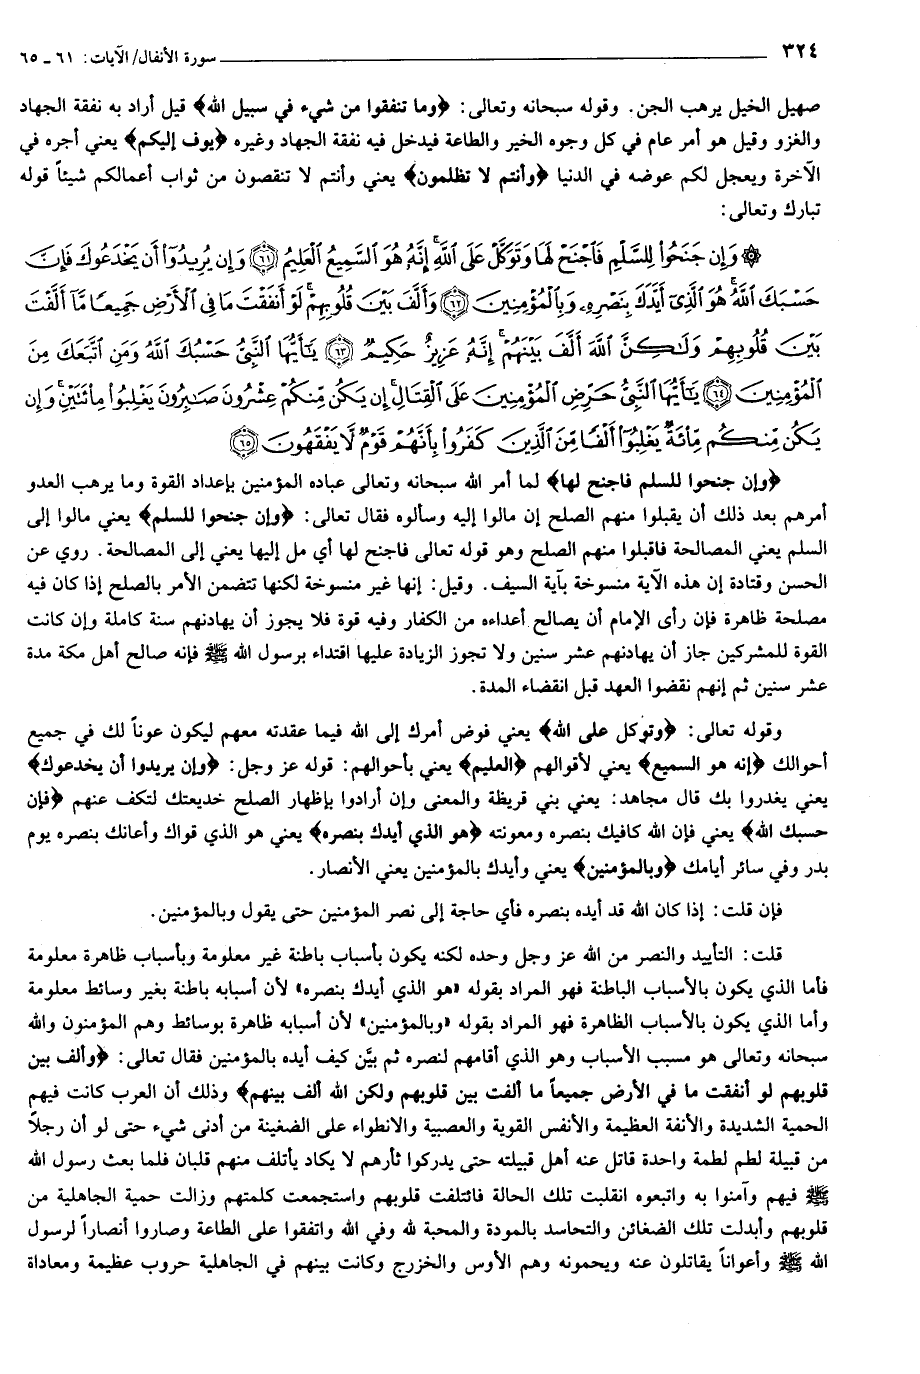 ٣٢٤ سورة الأنفال/ الآيات: ٦١ ـ ٦٥
صهيل الخيل يرهب الجن. وقوله سبحانه وتعالى: ﴿وما تنفقوا من شيء في سبيل الله﴾ قيل أراد به نفقة الجهاد
والغزو وقيل هو أمر عام في كل وجوه الخير والطاعة فيدخل فيه نفقة الجهاد وغيره ﴿يوف إليكم﴾ يعني أجره في
الآخرة ويعجل لكم عوضه في الدنيا ﴿وأنتم لا تظلمون﴾ يعني وأنتم لا تنقصون من ثواب أعمالكم شيئاً قوله
تبارك وتعالى:
۞ وَإِن جَنَحُواْ لِلسَّلْمِ فَاجْنَحْ لَهَا وَتَوَكَّلْ عَلَى اللَّهِ ۚ إِنَّهُ هُوَ السَّمِيعُ الْعَلِيمُ ﴿٦١﴾ وَإِن يُرِيدُوٓاْ أَن يَخْدَعُوكَ فَإِنَّ
حَسْبَكَ اللَّهُ ۚ هُوَ الَّذِىٓ أَيَّدَكَ بِنَصْرِهِۦ وَبِالْمُؤْمِنِينَ ﴿٦٢﴾ وَأَلَّفَ بَيْنَ قُلُوبِهِمْ ۚ لَوْ أَنفَقْتَ مَا فِى الْأَرْضِ جَمِيعًا مَّآ أَلَّفْتَ
بَيْنَ قُلُوبِهِمْ وَلَٰكِنَّ اللَّهَ أَلَّفَ بَيْنَهُمْ ۚ إِنَّهُ عَزِيزٌ حَكِيمٌ ﴿٦٣﴾ يَٰٓأَيُّهَا النَّبِىُّ حَسْبُكَ اللَّهُ وَمَنِ اتَّبَعَكَ مِنَ
الْمُؤْمِنِينَ ﴿٦٤﴾ يَٰٓأَيُّهَا النَّبِىُّ حَرِّضِ الْمُؤْمِنِينَ عَلَى الْقِتَالِ ۚ إِن يَكُن مِّنكُمْ عِشْرُونَ صَٰبِرُونَ يَغْلِبُواْ مِاْئَتَيْنِ ۚ وَإِن
يَكُن مِّنكُم مِّاْئَةٌ يَغْلِبُوٓاْ أَلْفًا مِّنَ الَّذِينَ كَفَرُواْ بِأَنَّهُمْ قَوْمٌ لَّا يَفْقَهُونَ ﴿٦٥﴾
﴿وإن جنحوا للسلم فاجنح لها﴾ لما أمر الله سبحانه وتعالى عباده المؤمنين بإعداد القوة وما يرهب العدو
أمرهم بعد ذلك أن يقبلوا منهم الصلح إن مالوا إليه وسألوه فقال تعالى: ﴿وإن جنحوا للسلم﴾ يعني مالوا إلى
السلم يعني المصالحة فاقبلوا منهم الصلح وهو قوله تعالى فاجنح لها أي مل إليها يعني إلى المصالحة. روي عن
الحسن وقتادة إن هذه الآية منسوخة بآية السيف. وقيل: إنها غير منسوخة لكنها تتضمن الأمر بالصلح إذا كان فيه
مصلحة ظاهرة فإن رأى الإمام أن يصالح أعداءه من الكفار وفيه قوة فلا يجوز أن يهادنهم سنة كاملة وإن كانت
القوة للمشركين جاز أن يهادنهم عشر سنين ولا تجوز الزيادة عليها اقتداء برسول الله ﷺ فإنه صالح أهل مكة مدة
عشر سنين ثم إنهم نقضوا العهد قبل انقضاء المدة.
وقوله تعالى: ﴿وتوكل على الله﴾ يعني فوض أمرك إلى الله فيما عقدته معهم ليكون عوناً لك في جميع
أحوالك ﴿إنه هو السميع﴾ يعني لأقوالهم ﴿العليم﴾ يعني بأحوالهم: قوله عز وجل: ﴿وإن يريدوا أن يخدعوك﴾
يعني يغدروا بك قال مجاهد: يعني بني قريظة والمعنى وإن أرادوا بإظهار الصلح خديعتك لتكف عنهم ﴿فإن
حسبك الله﴾ يعني فإن الله كافيك بنصره ومعونته ﴿هو الذي أيدك بنصره﴾ يعني هو الذي قواك وأعانك بنصره يوم
بدر وفي سائر أيامك ﴿وبالمؤمنين﴾ يعني وأيدك بالمؤمنين يعني الأنصار.
فإن قلت: إذا كان الله قد أيده بنصره فأي حاجة إلى نصر المؤمنين حتى يقول وبالمؤمنين.
قلت: التأييد والنصر من الله عز وجل وحده لكنه يكون بأسباب باطنة غير معلومة وبأسباب ظاهرة معلومة
فأما الذي يكون بالأسباب الباطنة فهو المراد بقوله «هو الذي أيدك بنصره» لأن أسبابه باطنة بغير وسائط معلومة
وأما الذي يكون بالأسباب الظاهرة فهو المراد بقوله «وبالمؤمنين» لأن أسبابه ظاهرة بوسائط وهم المؤمنون والله
سبحانه وتعالى هو مسبب الأسباب وهو الذي أقامهم لنصره ثم بيَّن كيف أيده بالمؤمنين فقال تعالى: ﴿وألف بين
قلوبهم لو أنفقت ما في الأرض جميعاً ما ألفت بين قلوبهم ولكن الله ألف بينهم﴾ وذلك أن العرب كانت فيهم
الحمية الشديدة والأنفة العظيمة والأنفس القوية والعصبية والانطواء على الضغينة من أدنى شيء حتى لو أن رجلاً
من قبيلة لطم لطمة واحدة قاتل عنه أهل قبيلته حتى يدركوا ثأرهم لا يكاد يأتلف منهم قلبان فلما بعث رسول الله
ﷺ فيهم وآمنوا به واتبعوه انقلبت تلك الحالة فائتلفت قلوبهم واستجمعت كلمتهم وزالت حمية الجاهلية من
قلوبهم وأبدلت تلك الضغائن والتحاسد بالمودة والمحبة لله وفي الله واتفقوا على الطاعة وصاروا أنصاراً لرسول
الله ﷺ وأعواناً يقاتلون عنه ويحمونه وهم الأوس والخزرج وكانت بينهم في الجاهلية حروب عظيمة ومعاداة